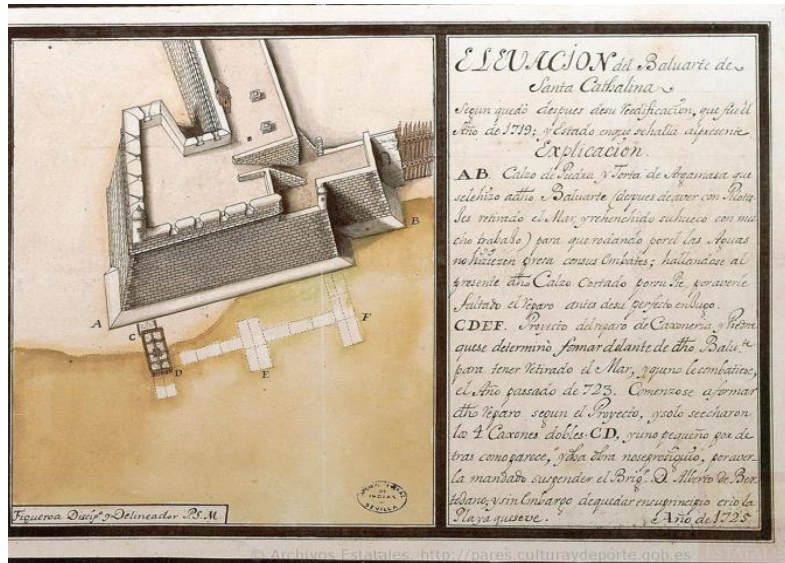 A
B
C
D
E
F
ARCHIVO GRAL
DE
INDIAS
SEVILLA
Figueroa Discip.º y Delineador P.S.M.
ELEVACION del Baluarte de
Santa Cathalina
Segun quedò despues de su Reedificacion, que fue el
Año de 1719; y Estado en que se halla al presente.
Explicacion.
AB. Calzo de Piedra y Torta de Argamasa que
se le hizo a dho Baluarte (depues de aver con Pilota
les retirado el Mar, y rehenchido su hueco con mu
cho trabajo) para que rodando por el las Aguas
no hiziezen preza con sus Embates; hallandose al
presente dho Calzo Cortado por su Pie, por averle
faltado el reparo antes de su perfecto
CDEF. Proyecto del reparo de Caxoneria y Piedra
que se determinò formar delante de dho Balu.te
para tener retirado el Mar, y que no le combatiese,
el Año passado de 723. Comenzose a formar
dho reparo segun el Proyecto, y solo se echaron
los 4 Caxones dobles CD, y uno pequeño por de
tras como parece, y dha obra no se prosiguio, por aver
la mandado suspender el Brig.r D. Alberto de Ber
todano; y sin Embargo de quedar en su principio criò la
Playa que se ve. Año de 1725
© Archivos Estatales, http://pares.culturaydeporte.gob.es